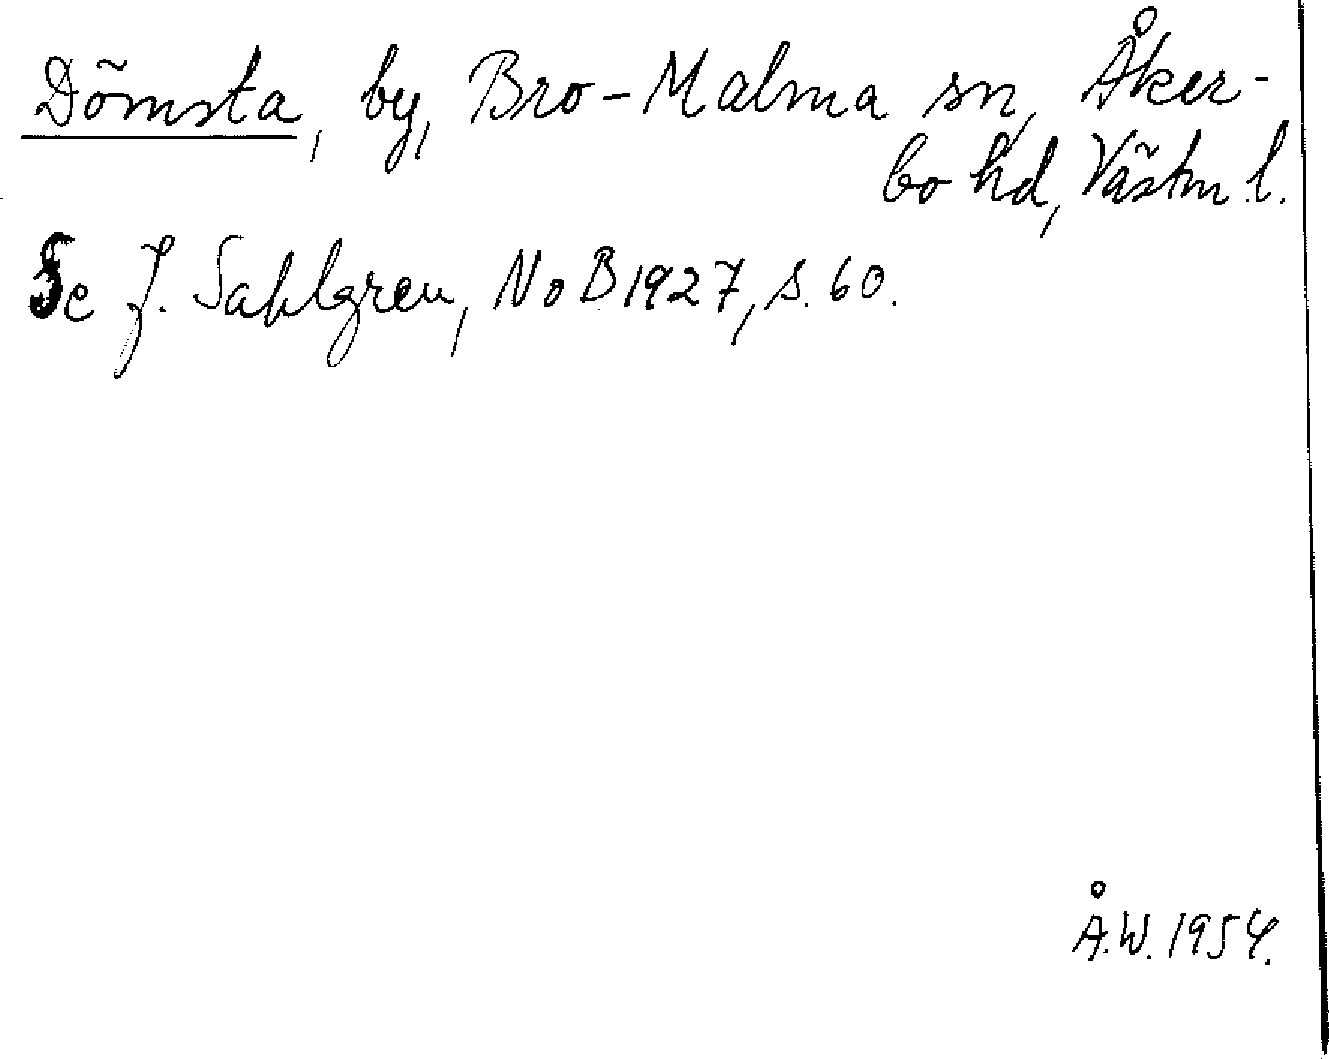 Dömsta, by, Bro-Malma sn, Åker-
bo hd, Västm. l.
Se J. Sahlgren, NoB 1927, s. 60.
Å.W. 1954.